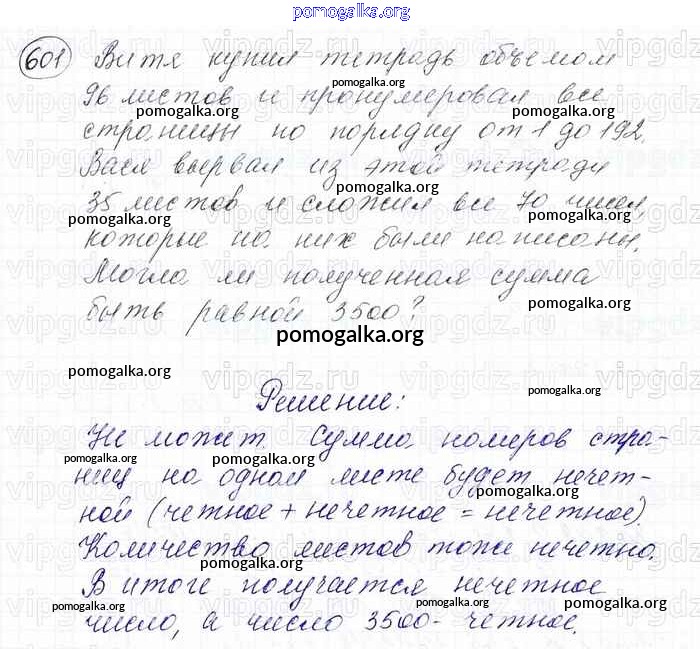 pomogalka.org
601 Витя купил тетрадь объемом
96 листов и пронумеровал все
страницы по порядку от 1 до 192.
Вася вырвал из этой тетради
35 листов и сложил все 70 чисел,
которые на них были написаны.
Могла ли полученная сумма
быть равной 3500?
Решение:
Не может. Сумма номеров стра-
ниц на одном листе будет нечет-
ной (четное + нечетное = нечетное).
Количество листов тоже нечетно.
В итоге получается нечетное
число, а число 3500 - четное.